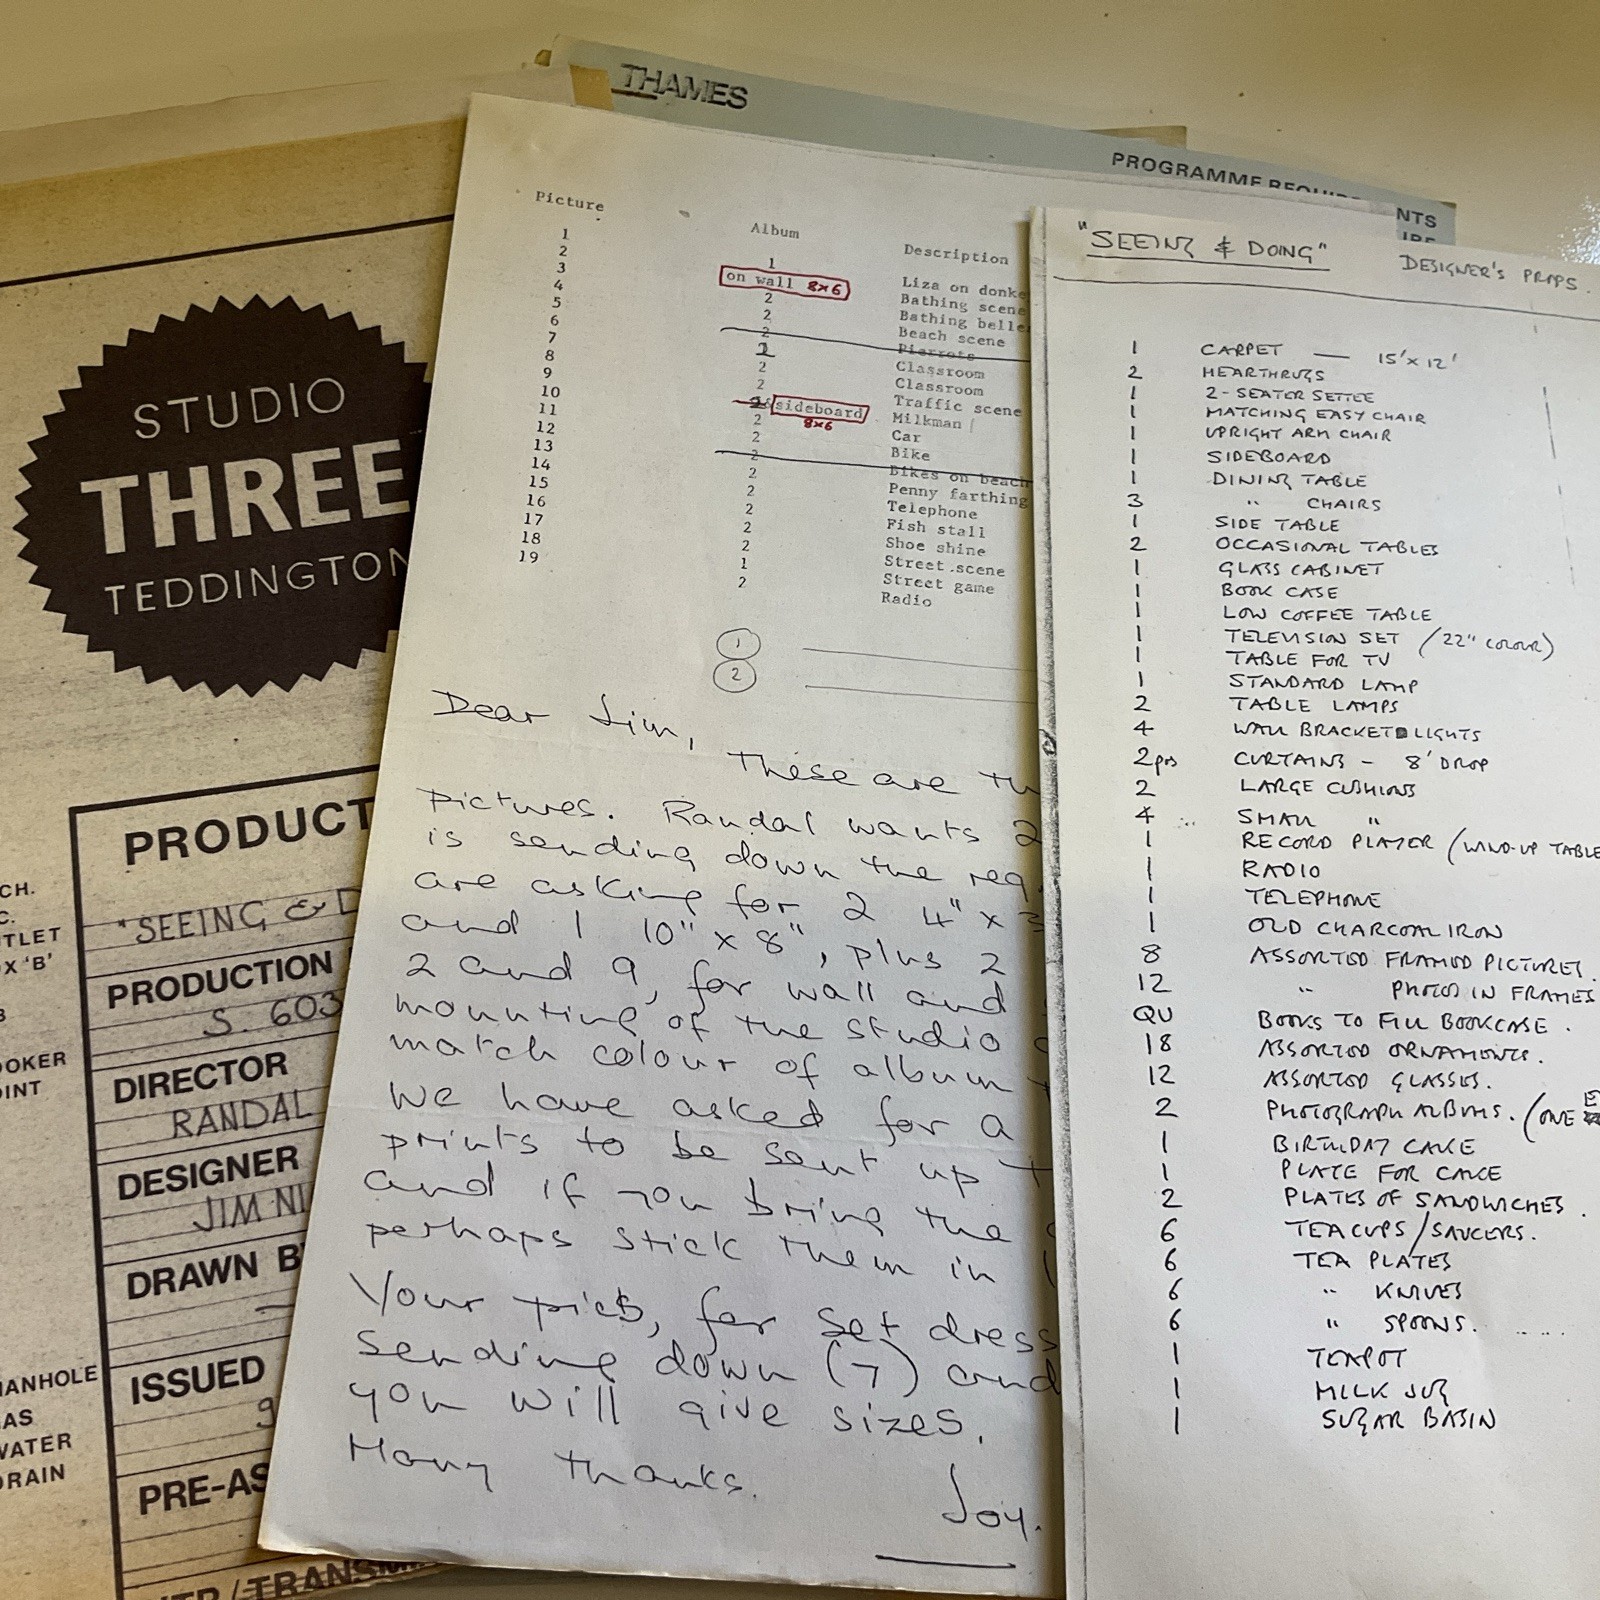 THAMES
PROGRAMME REQUIR
NTS
STUDIO
THREE
TEDDINGTON
CH.
C.
TLET
X 'B'
OOKER
OINT
MANHOLE
AS
WATER
DRAIN
PRODUCT
"SEEING & D
PRODUCTION
S. 603
DIRECTOR
RANDAL
DESIGNER
JIM NI
DRAWN B
ISSUED
9
PRE-AS
VTR/TRANSM
Picture Album Description
1
2
3
4
5
6
7
8
9
10
11
12
13
14
15
16
17
18
19
1
on wall 8x6
2
2
2
2
2
2
sideboard
8x6
2
2
2
2
2
2
2
2
1
2
Liza on donke
Bathing scene
Bathing belle
Beach scene
Pierrots
Classroom
Classroom
Traffic scene
Milkman
Car
Bike
Bikes on beach
Penny farthing
Telephone
Fish stall
Shoe shine
Street scene
Street game
Radio
1
2
Dear Jim,
These are th
pictures. Randal wants 2
is sending down the req
are asking for 2 4" x 3
and 1 10" x 8", plus 2
2 and 9, for wall and
mounting of the studio
match colour of album
We have asked for a
prints to be sent up t
and if you bring the
perhaps stick them in
Your pics, for set dress
sending down (7) and
you will give sizes.
Many thanks.
Joy.
"SEEING & DOING" DESIGNER'S PROPS.
1 CARPET — 15' x 12'
2 HEARTHRUGS
1 2-SEATER SETTEE
1 MATCHING EASY CHAIR
1 UPRIGHT ARM CHAIR
1 SIDEBOARD
1 DINING TABLE
3 " CHAIRS
1 SIDE TABLE
2 OCCASIONAL TABLES
1 GLASS CABINET
1 BOOK CASE
1 LOW COFFEE TABLE
1 TELEVISION SET (22" COLOUR)
1 TABLE FOR TV
1 STANDARD LAMP
2 TABLE LAMPS
4 WALL BRACKET LIGHTS
2prs CURTAINS - 8' DROP
2 LARGE CUSHIONS
4 SMALL "
1 RECORD PLAYER (WIND-UP TABLE
1 RADIO
1 TELEPHONE
1 OLD CHARCOAL IRON
8 ASSORTED FRAMED PICTURES.
12 " PHOTOS IN FRAMES
QU BOOKS TO FILL BOOKCASE.
18 ASSORTED ORNAMENTS.
12 ASSORTED GLASSES.
2 PHOTOGRAPH ALBUMS. (ONE
1 BIRTHDAY CAKE
1 PLATE FOR CAKE
2 PLATES OF SANDWICHES.
6 TEACUPS/SAUCERS.
6 TEA PLATES
6 " KNIVES
6 " SPOONS.
1 TEAPOT
1 MILK JUG
1 SUGAR BASIN